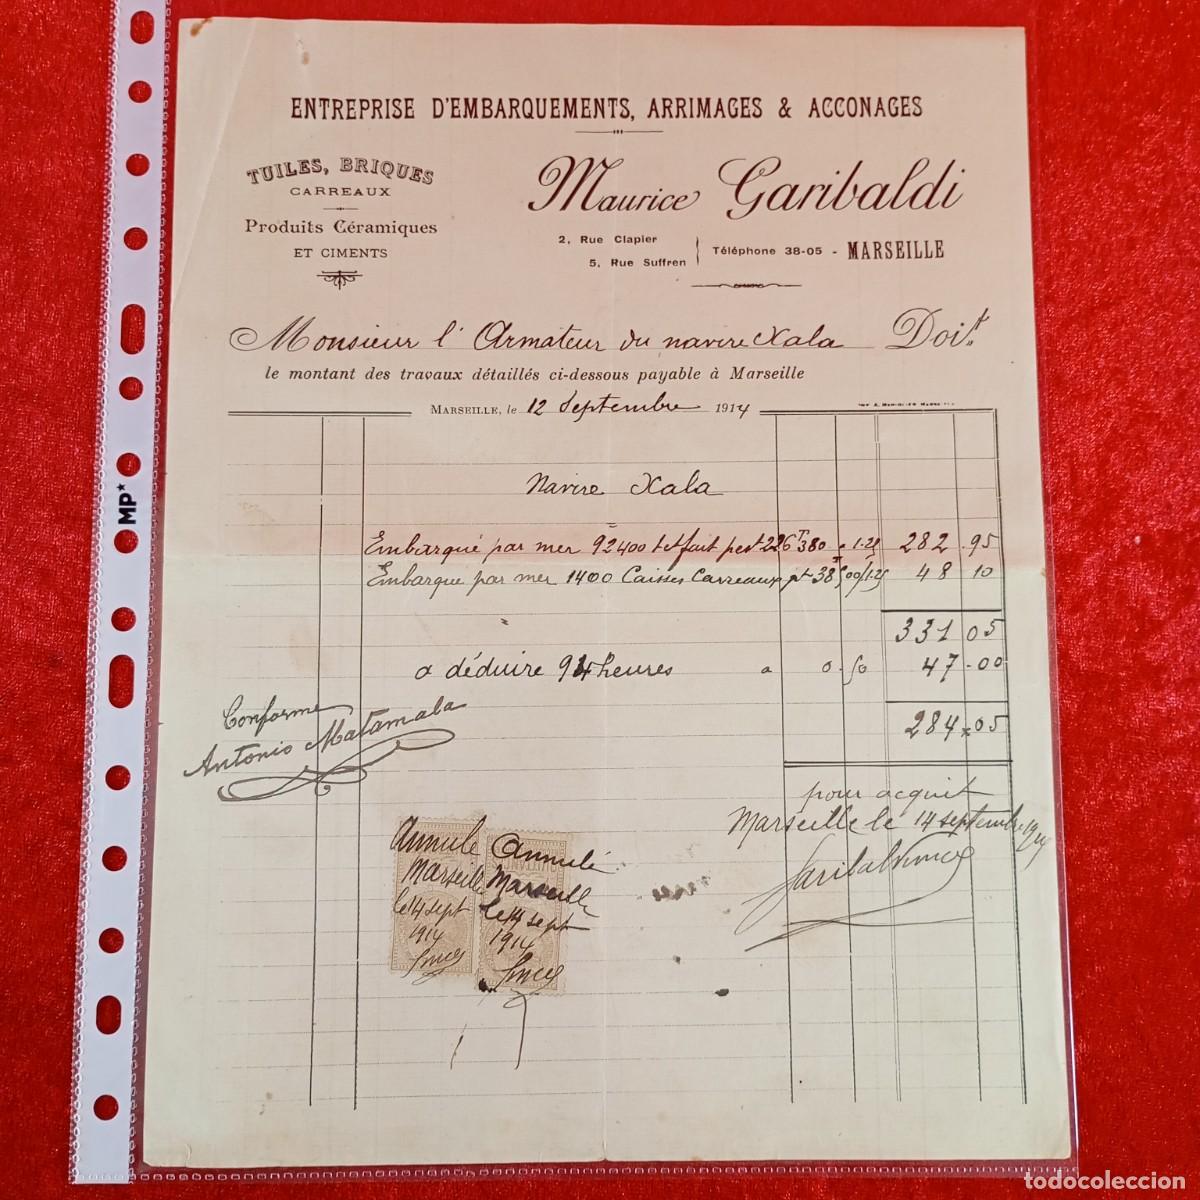 ENTREPRISE D'EMBARQUEMENTS, ARRIMAGES & ACCONAGES
TUILES, BRIQUES
CARREAUX
Produits Céramiques
ET CIMENTS
Maurice Garibaldi
2, Rue Clapier
5, Rue Suffren
Téléphone 38-05 - MARSEILLE
Monsieur l'Armateur du navire Xala Doit
le montant des travaux détaillés ci-dessous payable à Marseille
MARSEILLE, le 12 Septembre 1914
Navire Xala
Embarqué par mer 92400 pest 226T380 1.25 282.95
Embarque par mer 1400 Caisses Carreaux pt 38T500 1.25 48 10
331 05
a déduire 94 heures a 0.50 47.00
284.05
Conforme
Antonio Matamala
pour acquit
Marseille le 14 septembre 1914
Annulé
Marseille
le 14 sept
1914
Annulé
Marseille
le 14 sept
1914
MP*
todocoleccion